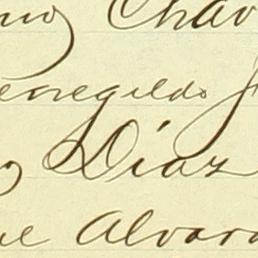 Chav
enegildo J
Diaz
ue Alvara